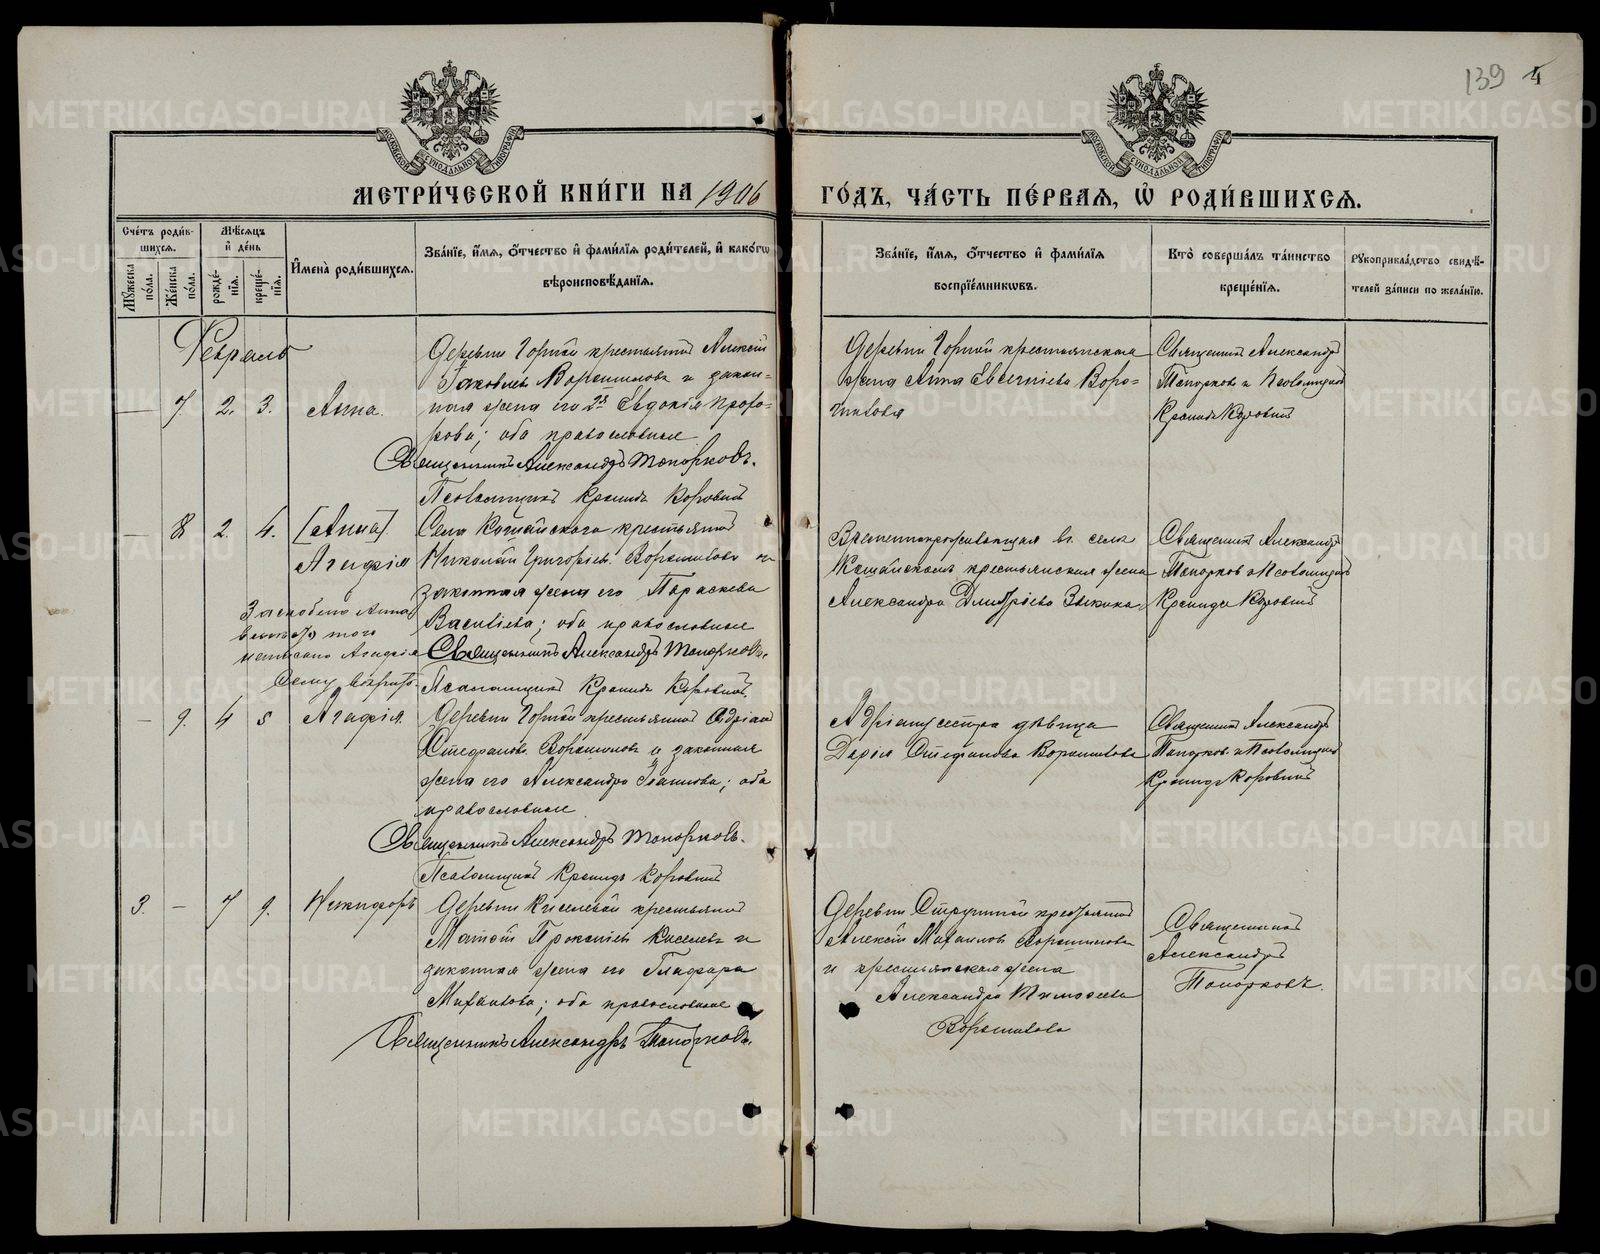 139 4
МОСКОВСКОЙ СѴНОДАЛЬНОЙ ТИПОГРАФІИ
МОСКОВСКОЙ СѴНОДАЛЬНОЙ ТИПОГРАФІИ
МЕТРИ́ЧЕСКОЙ КНИ́ГИ НА 1906 ГО́ДЪ, ЧА́СТЬ ПЕ́РВАЯ, Ѡ РОДИ́ВШИХСЯ.
Сче́тъ роди́в-
шихся.
Мѣ́сяцъ
и҆ де́нь
Мꙋжеска по́ла.
Же́нска по́ла.
рожде́-
нїя.
креще́-
нїя.
И҆мена̀ роди́вшихся.
Зва́нїе, и҆́мя, ѻ҆́тчество и҆ фами́лїя роди́телей, и҆ како́гѡ
вѣроисповѣ́данїя.
Зва́нїе, и҆́мя, ѻ҆́тчество и҆ фами́лїя
воспрїе́мникѡвъ.
Кто̀ соверша́лъ та́инство
креще́нїя.
Рꙋкоприкла́дство свидѣ́-
телей за́писи по жела́нїю.
Февраль
— 7 2. 3. Анна.
Деревни Горной крестьянинъ Алексій
Іаковлевъ Ворошиловъ и закон-
ная жена его 2й Евдокія Прохо-
рова; оба православные
Священникъ Александръ Топорковъ.
Псаломщикъ Кронидъ Коровинъ
Деревни Горной крестьянская
жена Анна Евгеніева Воро-
шилова
Священникъ Александръ
Топорковъ и Псаломщикъ
Кронидъ Коровинъ
— 8 2. 4. [Анна].
Агафія
Заскоблено Анна
вмѣсто того
написано Агафія
Сему вѣрить.
Села Кошайскаго крестьянинъ
Николай Григорьевъ Ворошиловъ и
законная жена его Параскева
Василіева; оба православные
Священникъ Александръ Топорковъ.
Псаломщикъ Кронидъ Коровинъ.
Временнопроживающая въ селѣ
Кошайскомъ крестьянская жена
Александра Димитріева Зыкина
Священникъ Александръ
Топорковъ и Псаломщикъ
Кронидъ Коровинъ
— 9. 4 5 Агафія.
Деревни Горной крестьянинъ Адріанъ
Стефановъ Ворошиловъ и законная
жена его Александра Іоаннова; оба
православные
Священникъ Александръ Топорковъ.
Псаломщикъ Кронидъ Коровинъ
Адріану сестра дѣвица
Дарія Стефанова Ворошилова
Священникъ Александръ
Топорковъ и Псаломщикъ
Кронидъ Коровинъ
3. — 7 9. Никифоръ
Деревни Киселевой крестьянинъ
Матѳій Прокопіевъ Киселевъ и
законная жена его Глафира
Михаилова; оба православные
Священникъ Александръ Топорковъ.
Алексій Михаиловъ Ворошиловъ
и крестьянская жена
Александра Тимоѳеева
Ворошилова
Священникъ
Александръ
Топорковъ.
METRIKI.GASO-URAL.RU